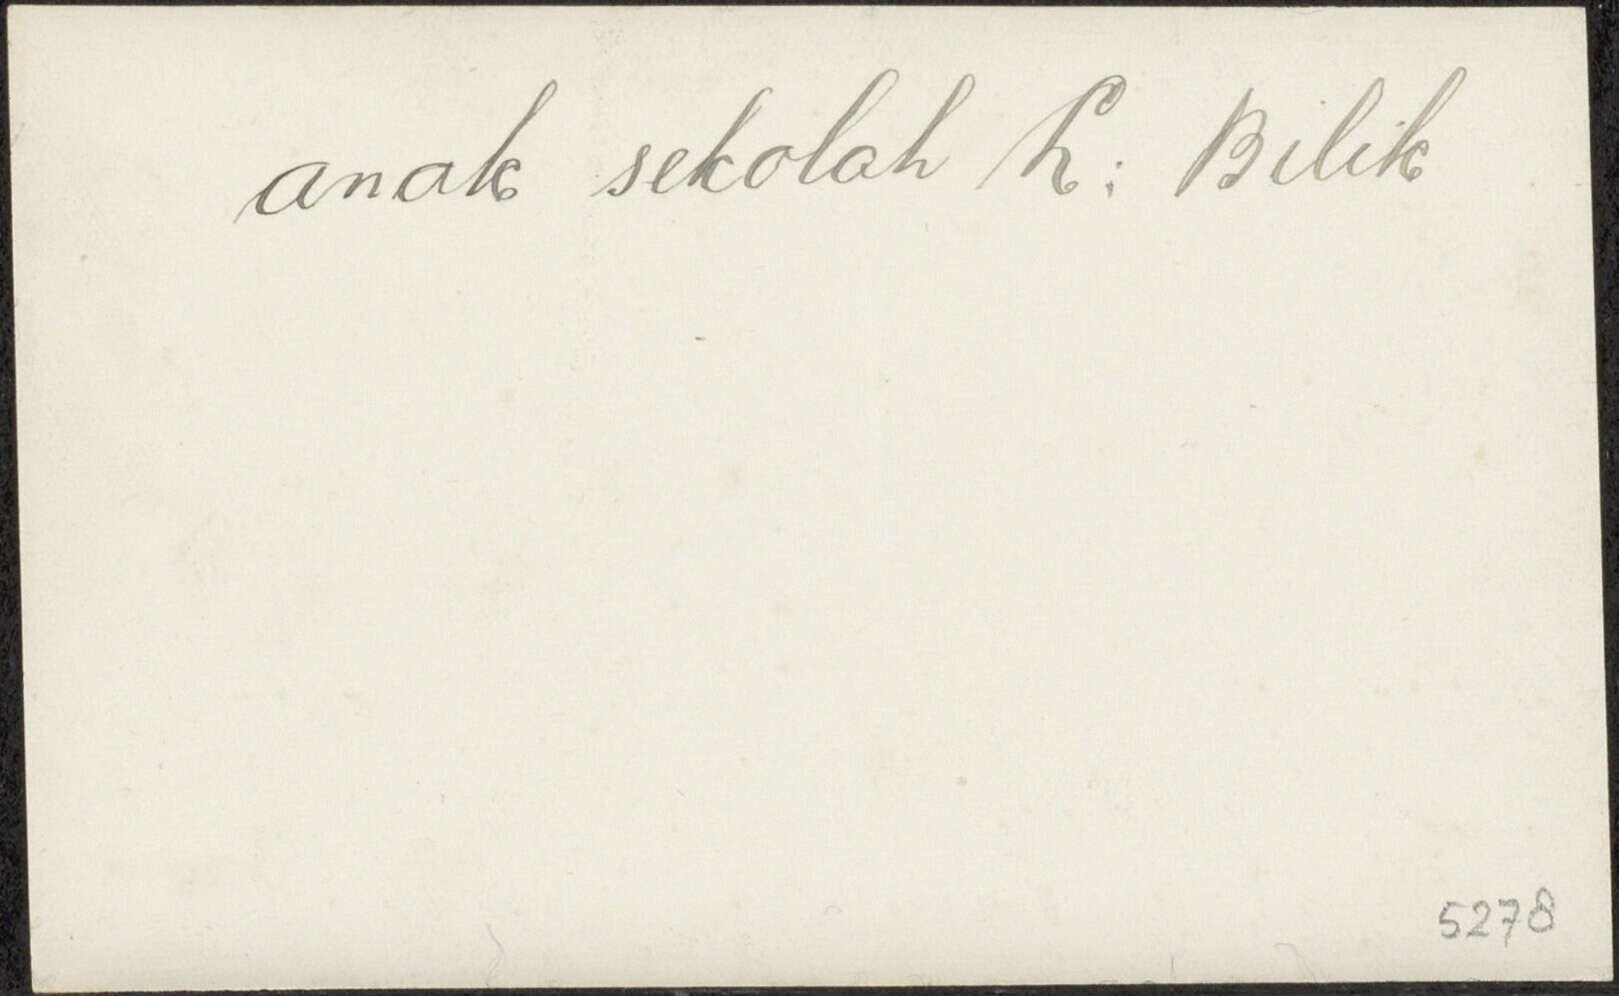 anak sekolah L: Bilik
5278